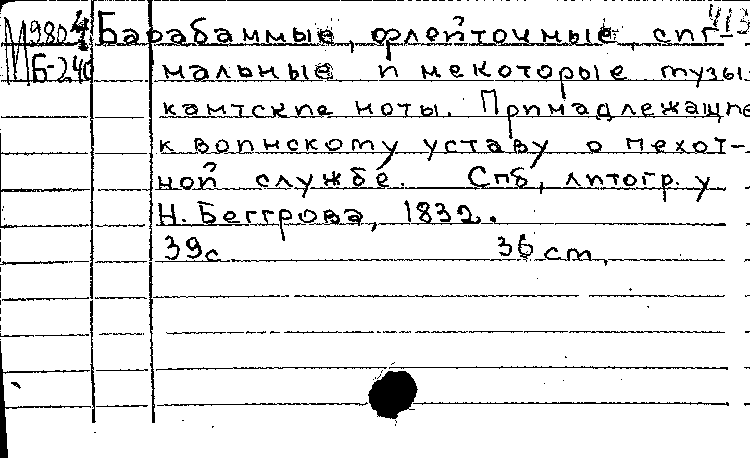 413
М980 4 Барабанные, флейточные, сиг-
Б-240 нальные и некоторые музы-
кантские ноты. Принадлежащие
к воинскому уставу о пехот-
ной службе. Спб, литогр. у
И. Беггрова, 1832.
39с. 36 cm.